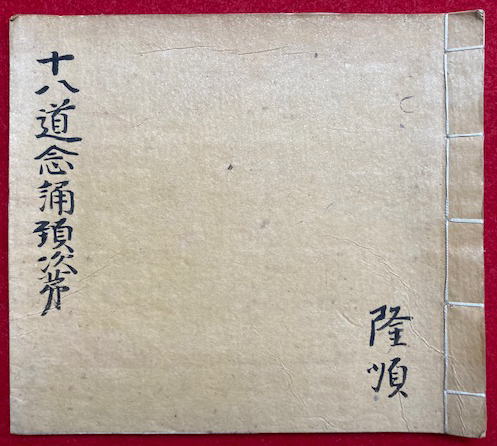 十八道念誦頚次第
隆順